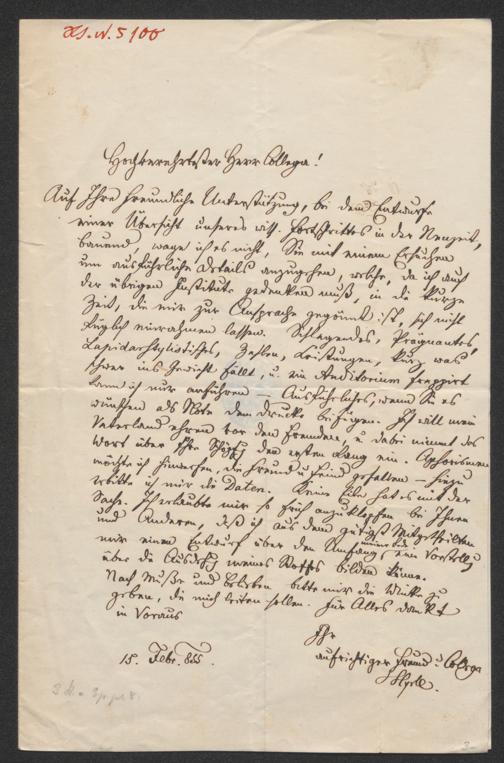 Hs. N. 5100
Hochverehrtester Herr Collega!
Auf Ihre freundliche Unterstützung, bei dem Entwurfe
einer Übersicht unseres wiss. Fortschrittes in der Neuzeit,
bauend, wage ich es nicht, Sie mit einem Ersuchen
um ausführliche Details anzugehen, welche, da ich auch
der übrigen Institute gedenken muß, in die kurze
Zeit, die mir zur Ansprache gegönnt ist, sich nicht
füglich einrahmen lassen. Schlagendes, Prägnantes
Lapidarstylistisches, Zahlen, Leistungen, kurz was
schwer ins Gewicht fällt, u. ein Auditorium frappirt
kann ich nur anführen. Ausführliches, wenn Sie es
wünschen als Note dem Drucke beifügen. Ich will mein
Vaterland ehren vor den Fremden, u dabei nimmt das
Wort über Ihre den ersten Rang ein. Aphorismen
möchte ich hinwerfen, die Freund u Feind gefallen – hiezu
erbitte ich mir die Daten. Keine Eile hat es mit der
Sache. Ich erlaubte mir so früh anzuklopfen bei Ihnen
und Anderen, daß ich aus dem gütigst Mitgetheilten
mir einen Entwurf über den Umfang, eine Vorstellg
über die meines Stoffes bilden könne.
Nach Muße und Belieben bitte mir die Winke zu
geben, die mich leiten sollen. Für Alles dankt
in Voraus
Ihr
aufrichtiger Freund u Collega
Hyrtl.
15. Febr. 855.